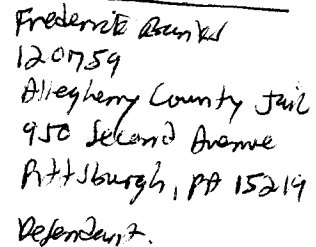 Frederick Banks
120759
Allegheny County Jail
950 Second Avenue
Pittsburgh, PA 15219
Defendant.